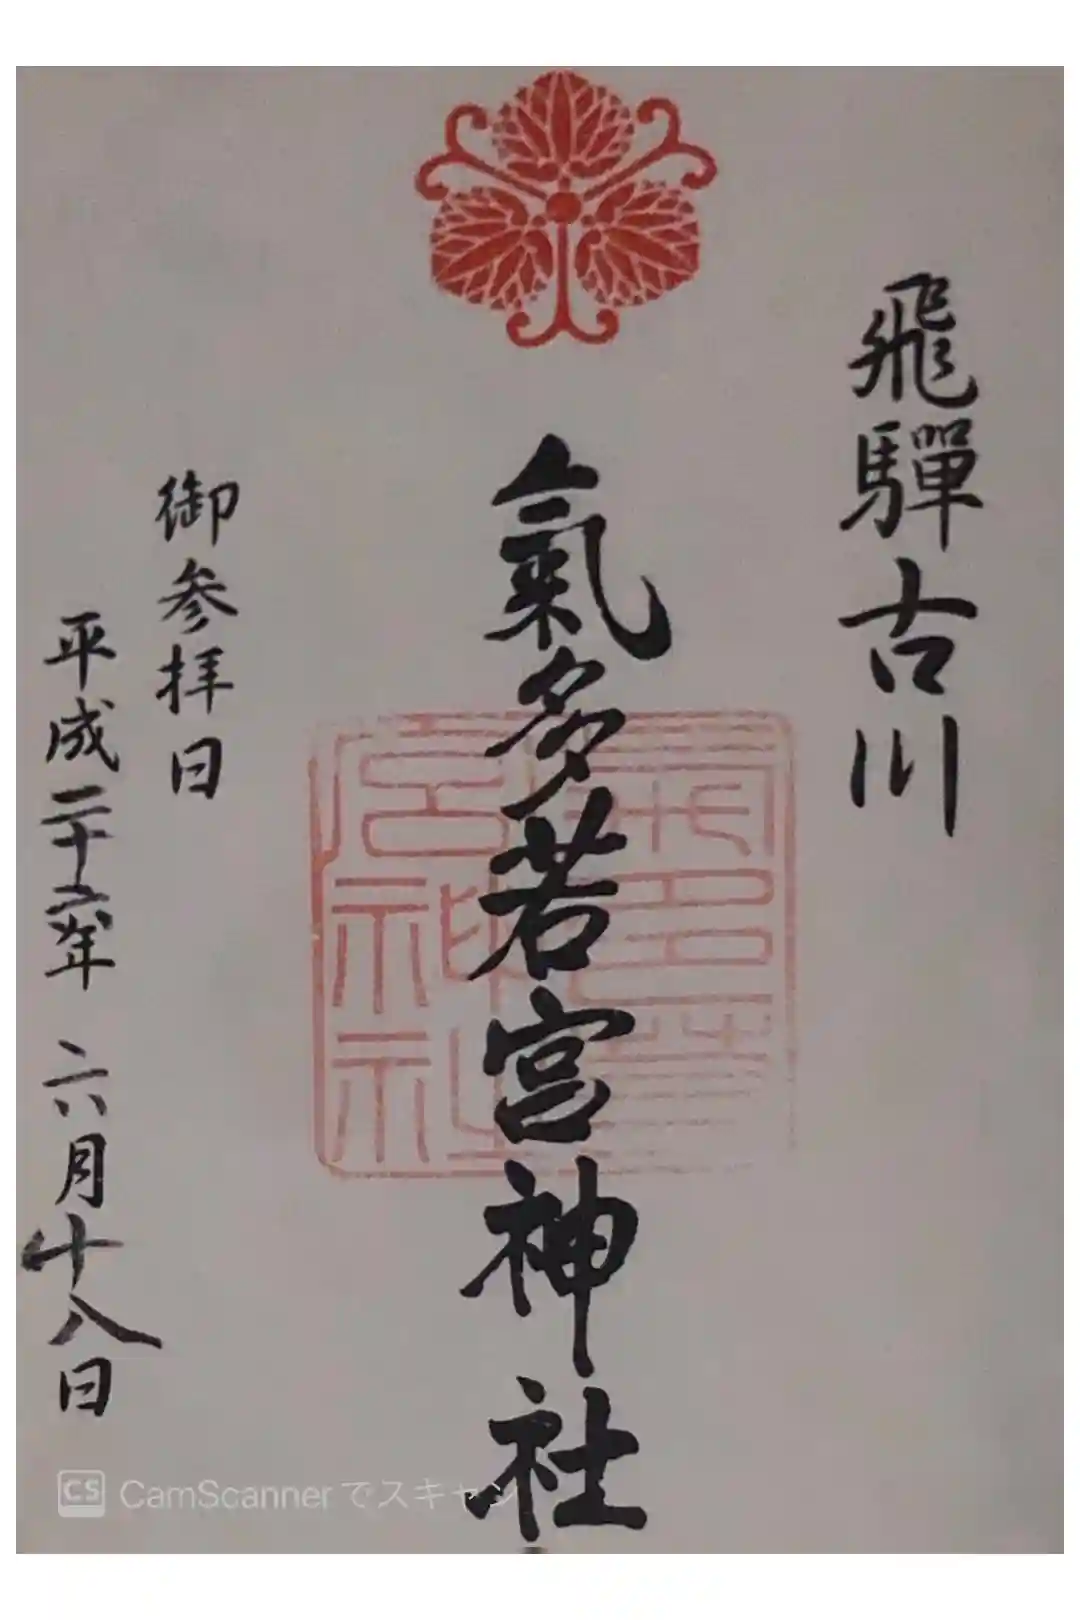 飛驒古川
氣多若宮神社
御参拝日
平成二十六年 六月十八日
CS CamScannerでスキャン